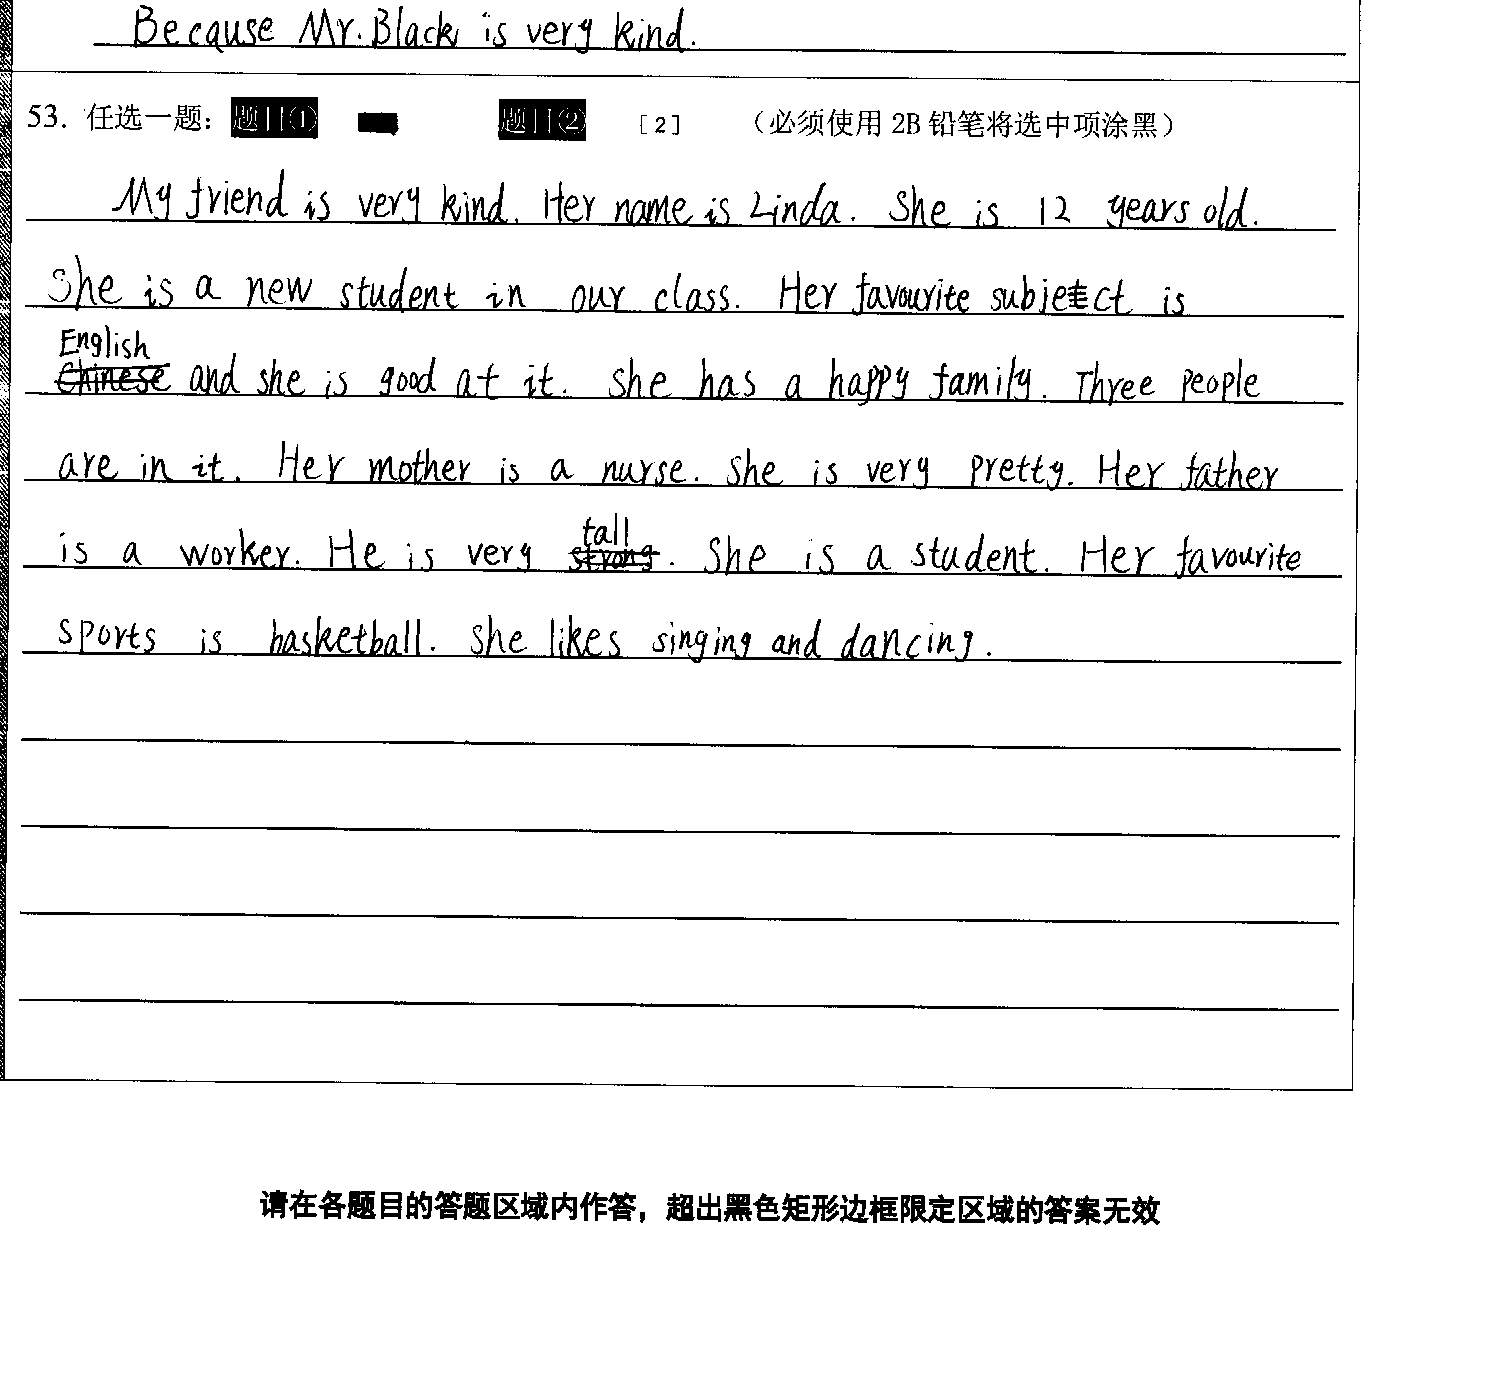 Because Mr. Black is very kind.
53. 任选一题: 题目① 题目② [2] (必须使用 2B 铅笔将选中项涂黑)
My friend is very kind. Her name is Linda. She is 12 years old.
She is a new student in our class. Her favourite subject is
English
Chinese and she is good at it. She has a happy family. Three people
are in it. Her mother is a nurse. She is very pretty. Her father
tall
is a worker. He is very strong. She is a student. Her favourite
sports is basketball. She likes singing and dancing.
请在各题目的答题区域内作答，超出黑色矩形边框限定区域的答案无效